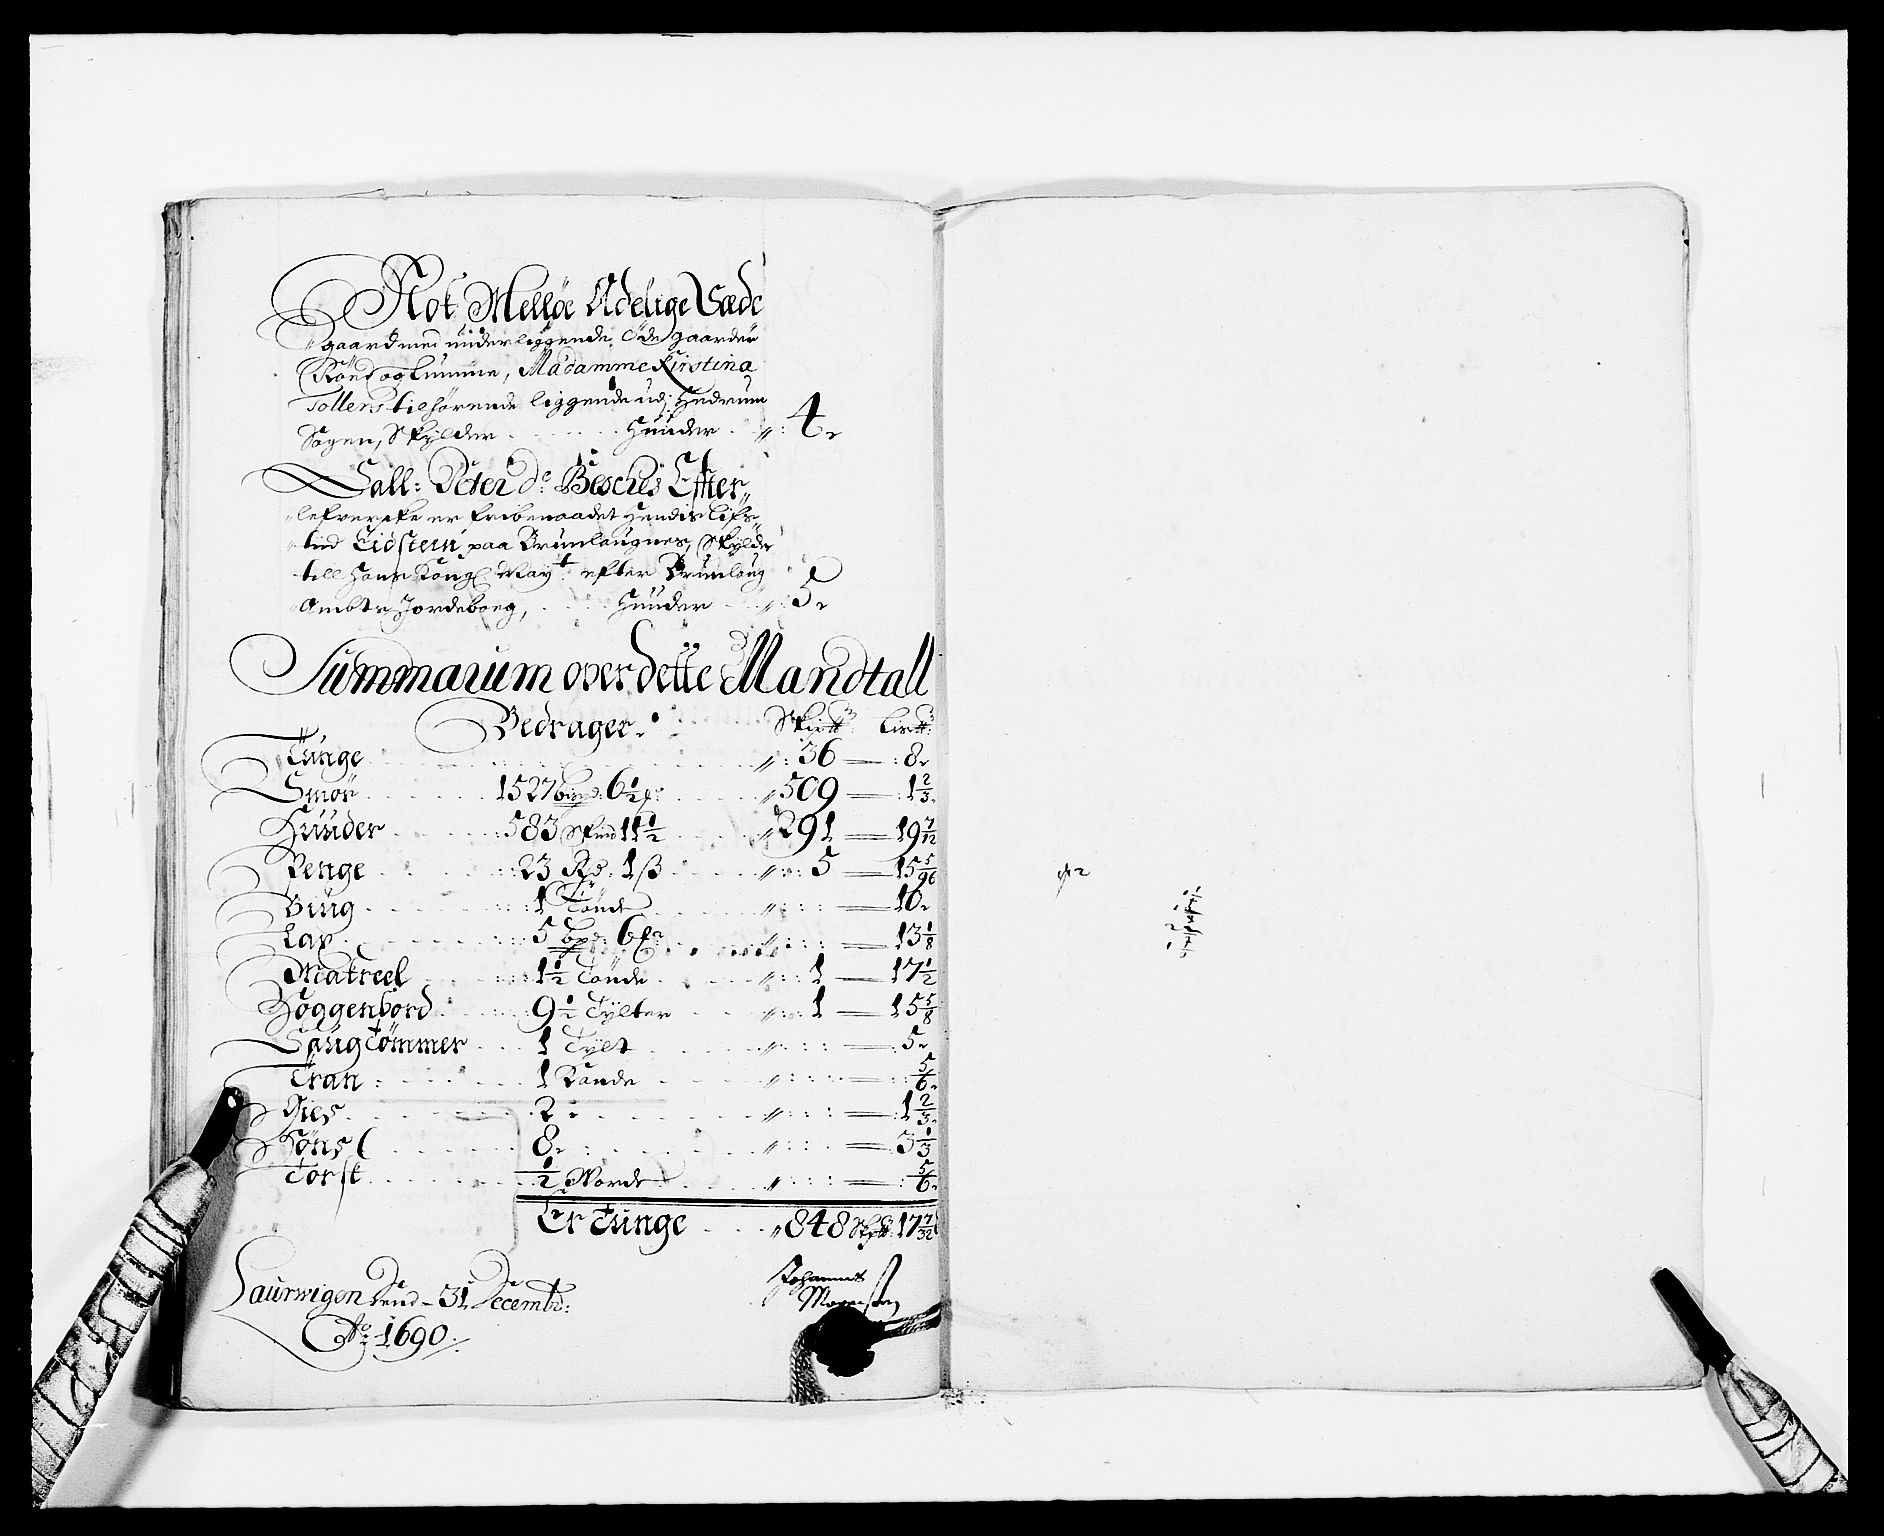 Not Melløe Adelige Sæde
gaard med underliggende Øde gaarder
Röed og Lumme, Madamme Kirstina
Tollers tilhørende liggende udj Hedrum
Sogen, Skylder . . . Huuder . . 4
Sall: Peter de Besches Efter
lefverske er fribenaadet Hendis Lifs
tid Eidstein paa Brunlaugnes, Skylder
till Hans Kongl May:t efter Brunlaug
Ambts Jordeboeg, . . . Huuder . . 5
Summarum over dette Mandtall
Bedrager. Skip℔ Lis℔
Tunge . . . 36 — 8
Smør . . . 1527 bpd: 6½ . . . 509 — 1⅔
Huuder . . . 583 Skind 11½ . . . 291 — 19 7/12
Penge . . . 23 Rd. 1 ß . . . 5 — 15 5/96
Biug . . . 1 Tönde . . . — 10
Lax . . . 5 bpd: 6 . . . — 13⅛
Matreel . . . 1½ Tönde . . . 1 — 17½
Hoggenbord . . . 9½ Tylter . . . 1 — 15⅝
Saugtømmer . . . 1 Tylt . . . — 5
Tran . . . 1 Kande . . . — ⅚
Gies . . . 2 . . . — 1⅔
Höns . . . 8 . . . — 3⅓
Torsk . . . ½ Worde . . . — ⅚
Er Tunge . . . 848 Skp℔ 17 7/32
Laurwigen Dend 31 Decembr:
Ao 1690
Johannes
Mogensen